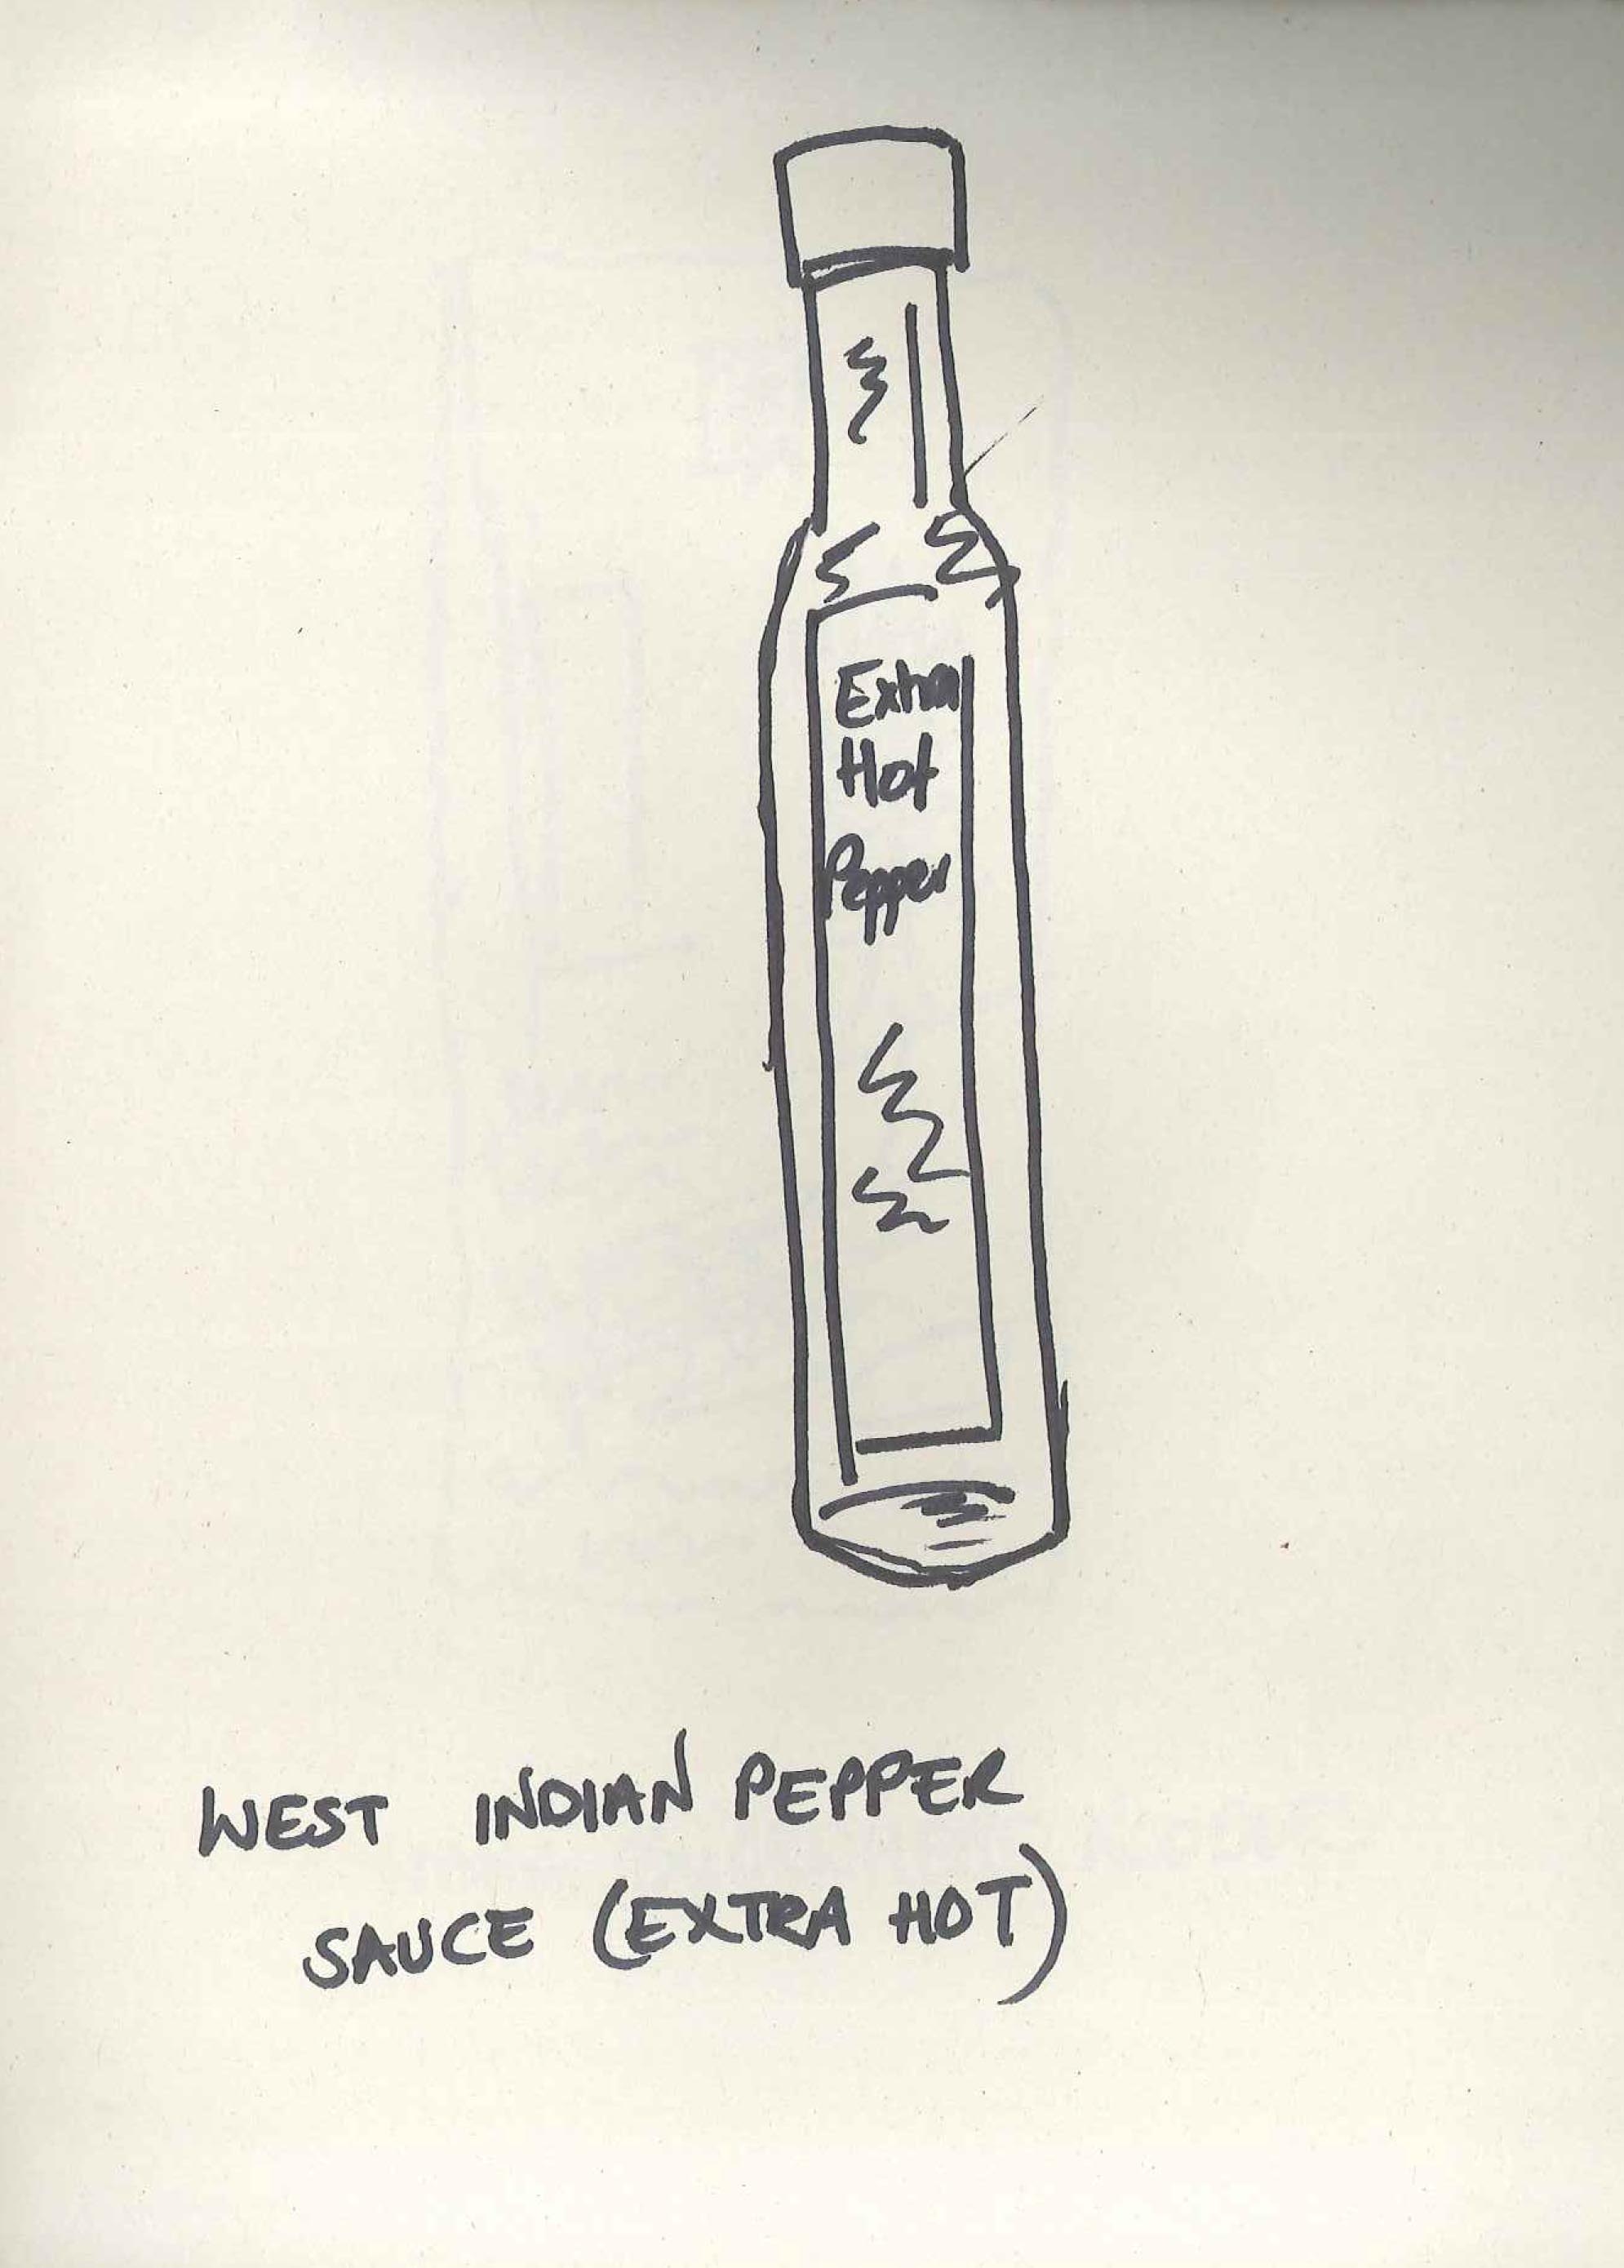 Extra
Hot
Pepper
WEST INDIAN PEPPER
SAUCE (EXTRA HOT)